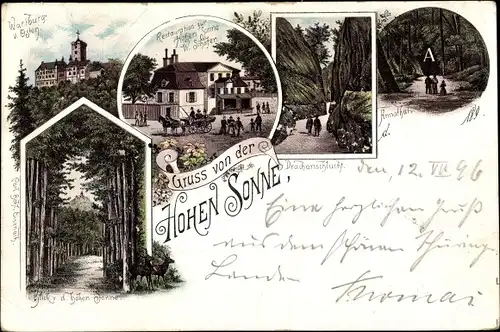 Wartburg
v. Osten
Restauration zur
Hohen Sonne
v. W. Schäfer
A
Annathal.
Drachenschlucht.
Gruss von der
HOHEN SONNE,
Blick v. d. hohen Sonne
den, 12. VII 96
Eine herzlichen Gruß
aus dem schönen Thüring
Lande
Thomas